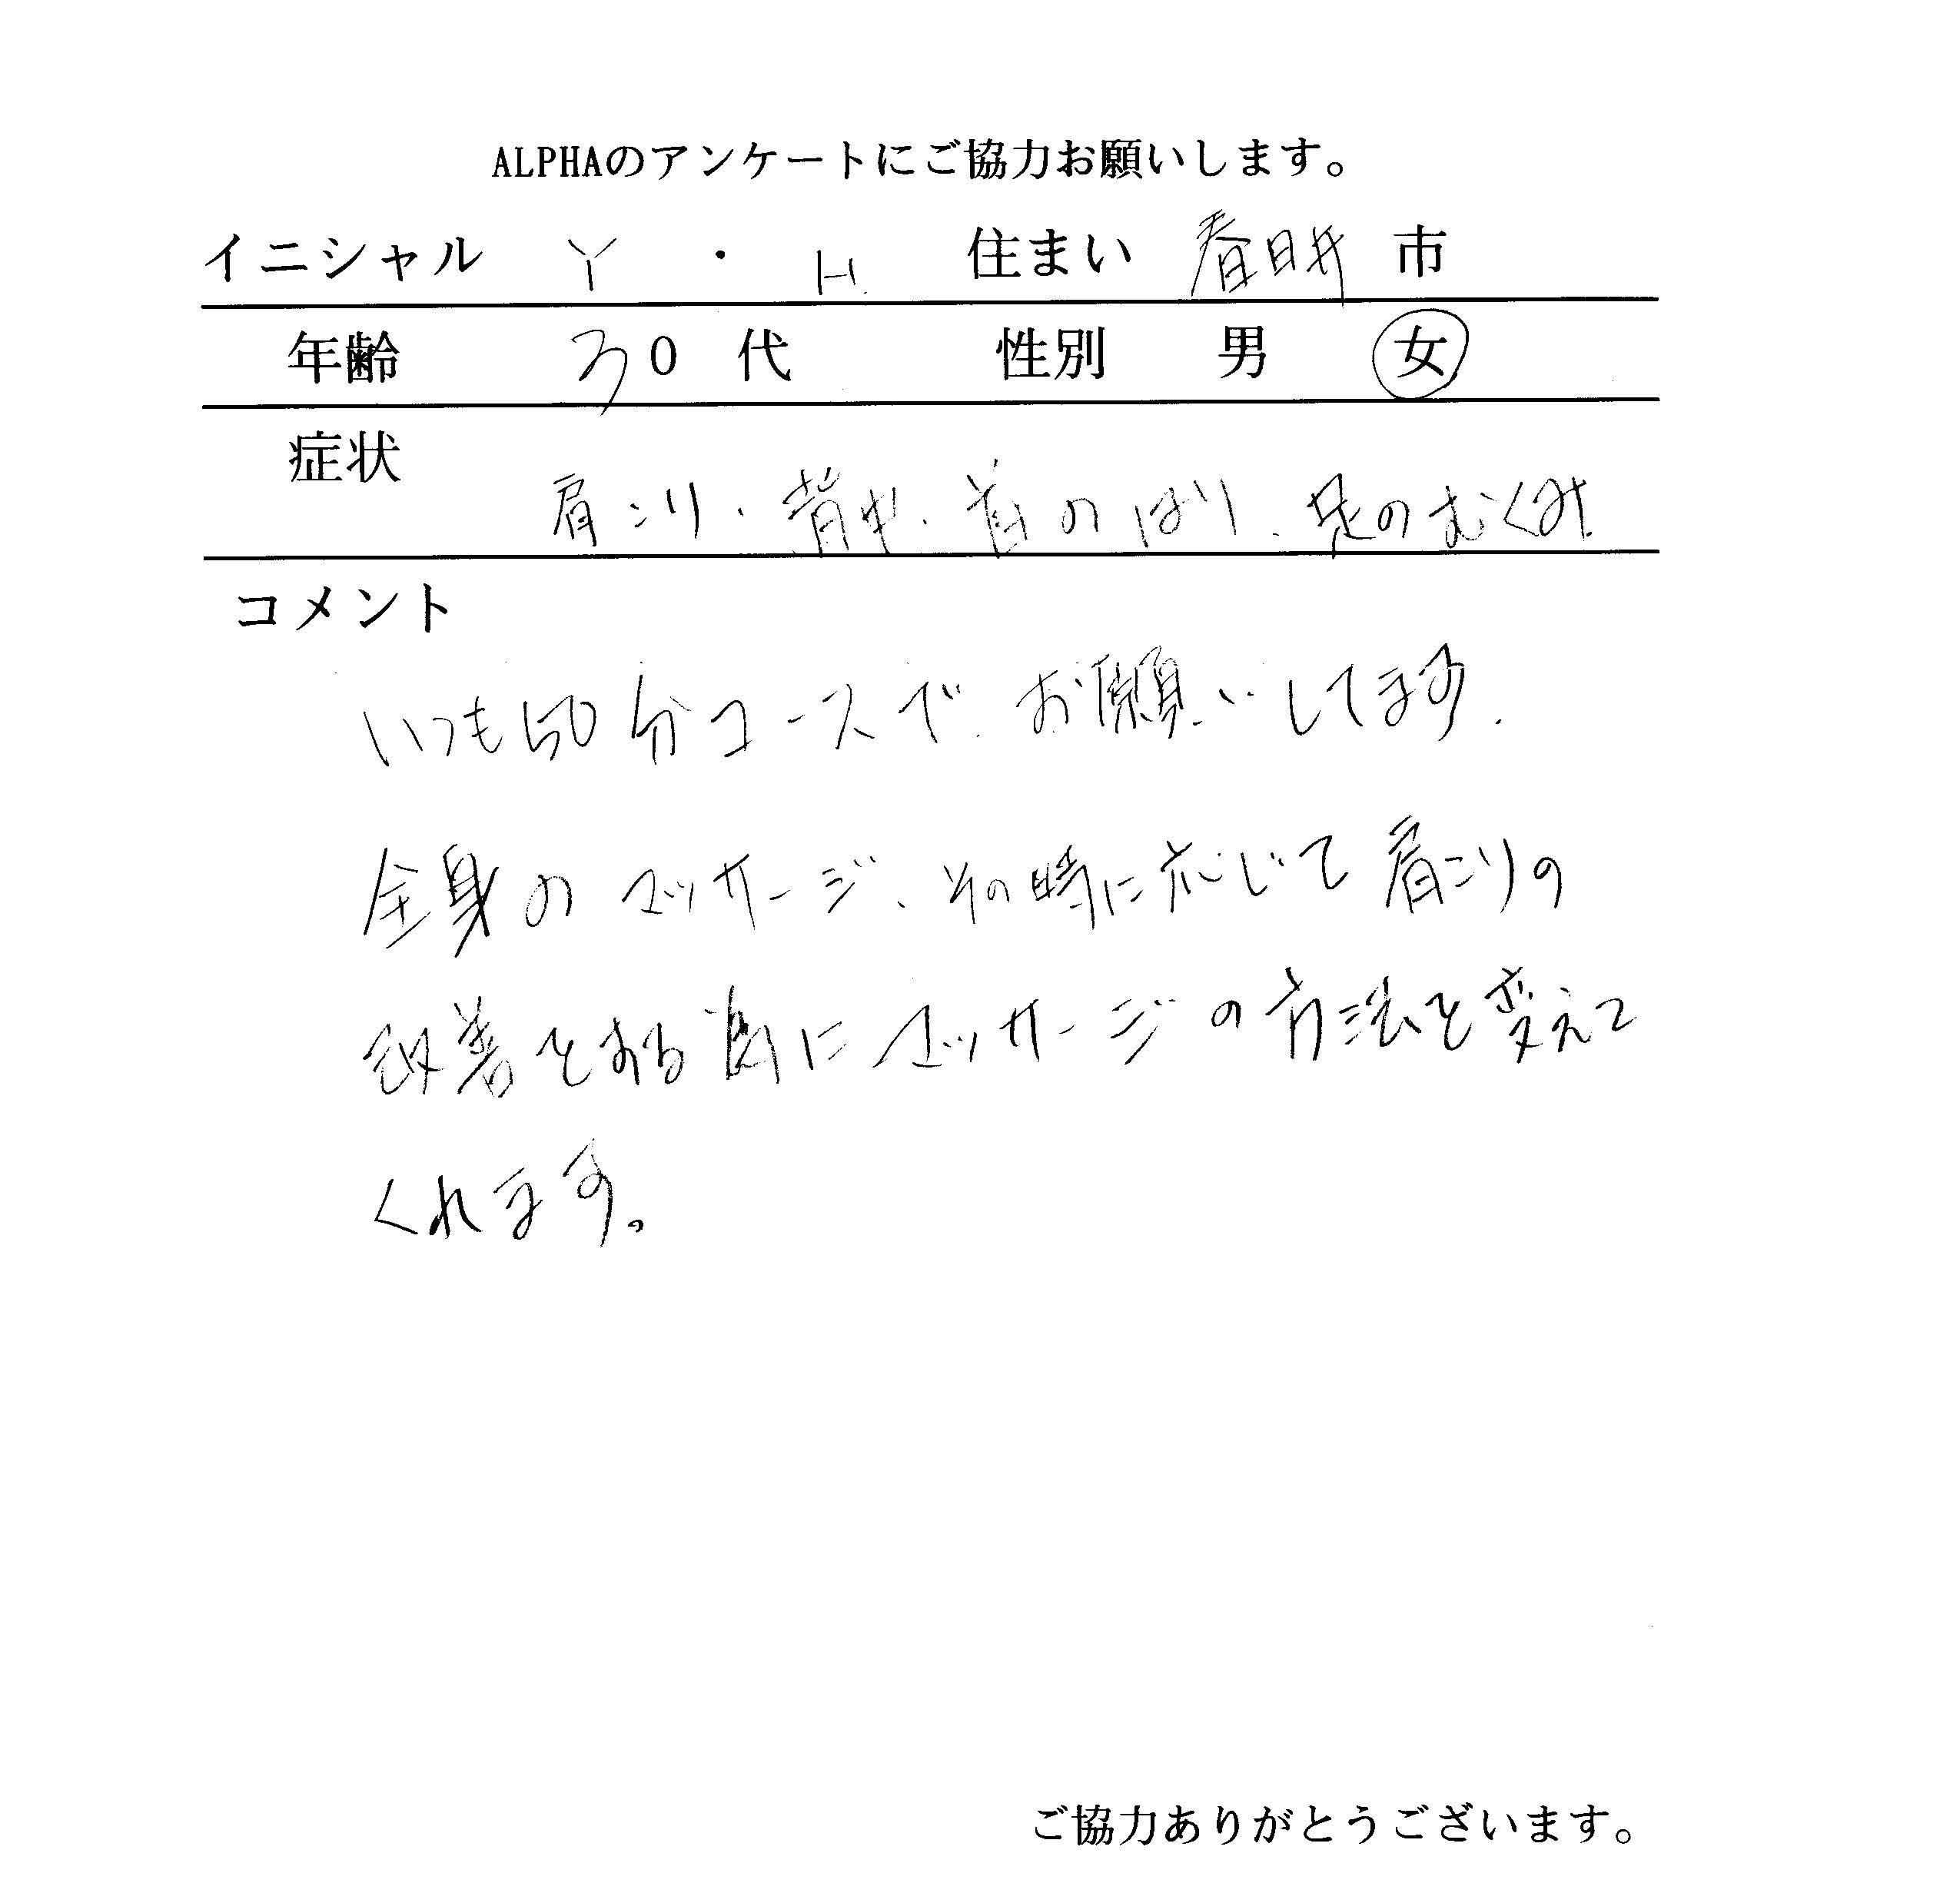 ALPHAのアンケートにご協力お願いします。
イニシャル Y ・ H. 住まい 春日井 市
年齢 30 代 性別 男 女
症状
肩こり、背中、首のはり、足のむくみ
コメント
いつも50分コースで、お願いしてます。
全身のマッサージ、その時に応じて肩こりの
改善をする為にマッサージの方法を変えて
くれます。
ご協力ありがとうございます。